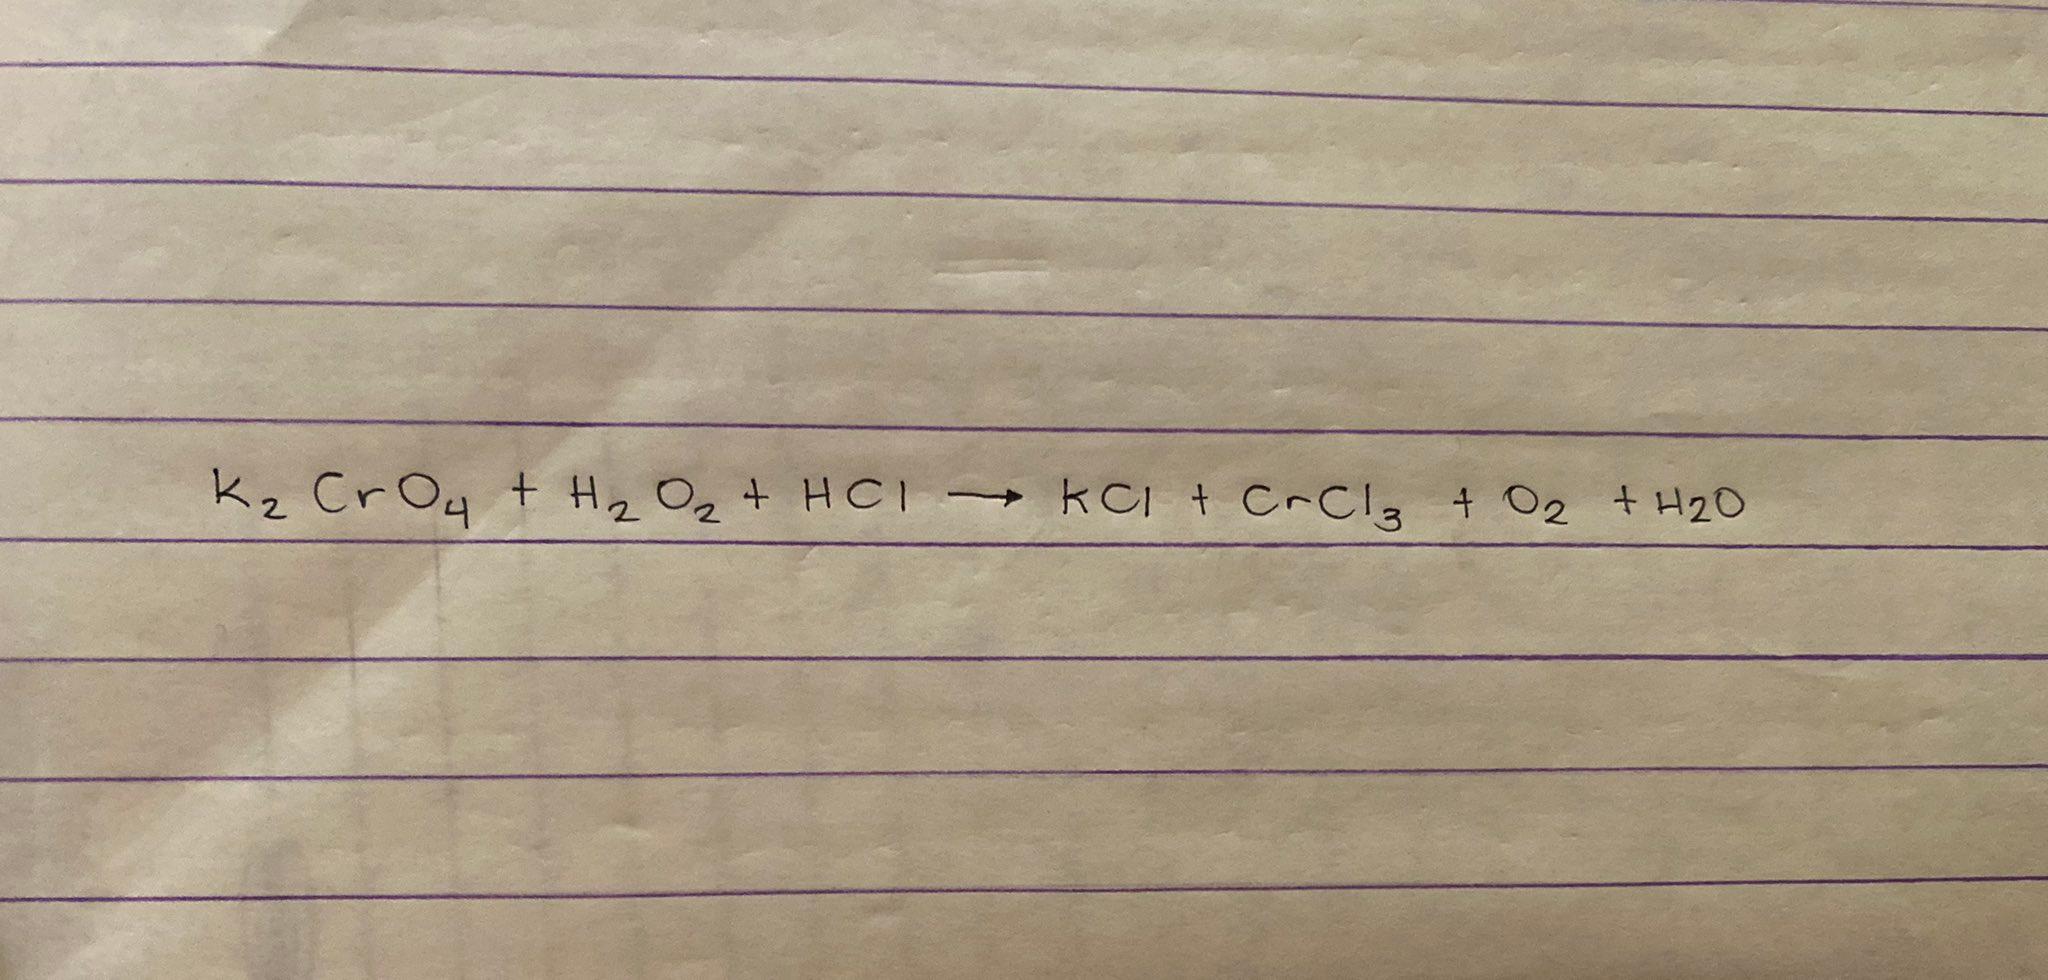 K₂CrO₄ + H₂O₂ + HCl → KCl + CrCl₃ + O₂ + H2O